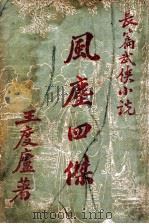 長篇武俠小說
風塵四傑
王度廬著